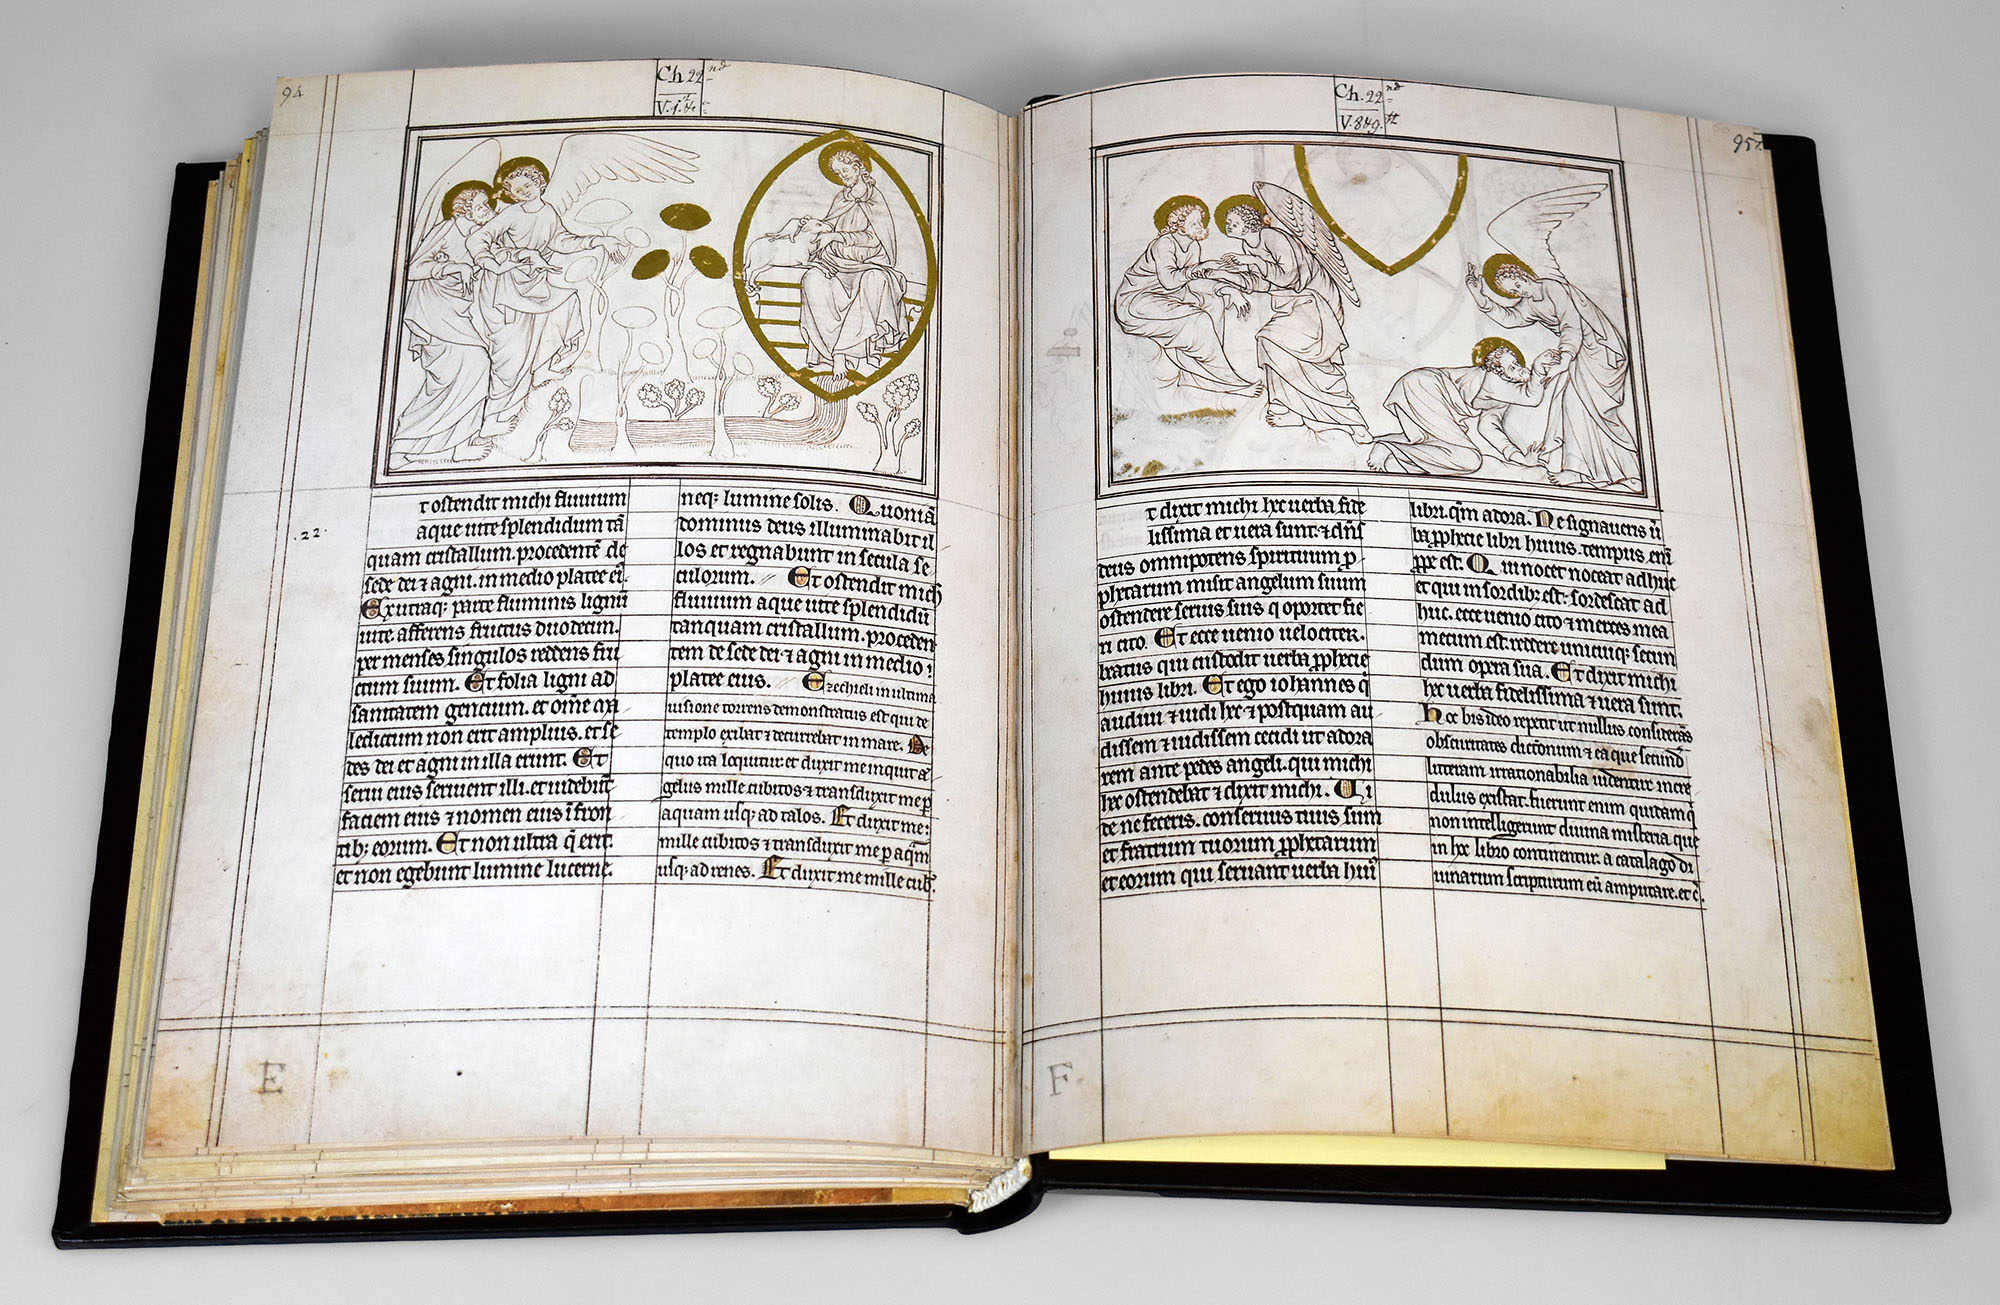 94
Ch. 22nd
V. 1.
.22.
t ostendit michi fluuium
aque uite splendidum tā
quam cristallum. procedentē de
sede dei ⁊ agni. in medio platee ei⁹.
Ex utraq; parte fluminis lignū
uite afferens fructus duodecim.
per menses singulos reddens fru
ctum suum. Et folia ligni ad
sanitatem gencium. et om̄e ma
ledictum non erit amplius. et se
des dei et agni in illa erunt. Et
serui eius seruient illi. et uidebūt
faciem eius ⁊ nomen eius ī fron
tib; eorum. Et non ultra q̄ erit.
et non egebunt lumine lucerne.
neq; lumine solis. Quoniā
dominus deus illuminabit il
los et regnabunt in secula se
culorum. Et ostendit mich
fluuium aque uite splendidū
tanquam cristallum. proceden
tem de sede dei ⁊ agni in medio
platee eius. Ezechieli in ultima
uisione torrens demonstratus est qui de
templo exibat ⁊ decurrebat in mare. De
quo ita loquitur. et duxit me inquit ā
gelus mille cubitos ⁊ transduxit me p̄
aquam usq; ad talos. Et duxit me
mille cubitos ⁊ transduxit me p aqm̄
usq; ad renes. Et duxit me mille cub̄.
E
95
Ch. 22nd
V. 8 & 9.th
t dixit michi hec uerba fide
lissima et uera sunt. ⁊ dn̄s
deus omnipotens spirituum p
phetarum misit angelum suum
ostendere seruis suis q oportet fie
ri cito. Et ecce uenio uelociter.
beatus qui custodit uerba pphecie
huius libri. Et ego iohannes q̄
audiui ⁊ uidi hec. ⁊ postquam au
dissem ⁊ uidissem cecidi ut adora
rem ante pedes angeli. qui michi
hec ostendebat ⁊ dixit michi. Ui
de ne feceris. conseruus tuus sum
et fratrum tuorum pphetarum
et eorum qui seruant uerba hui⁹
libri. qm̄ adora. Ne signaueris ū
ba pphecie libri huius. tempus enī
ppe est. Qui nocet noceat adhuc
et qui in sordib; est. sordescat ad
huc. ecce uenio cito ⁊ merces mea
mecum est. reddere unicuiq; secun
dum opera sua. Et dixit michi
hec uerba fidelissima ⁊ uera sunt.
Hoc bis ideo repetit ut nullus considerās
obscuritates dictionum ⁊ ea que secund̄
litteram irrationabilia uidentur incre
dulus existat. fuerunt enim quidam q̄
non intelligerunt diuina misteria que
in hoc libro continentur. a catalago di
uinarum scripturum eū amputare. et c̄
F